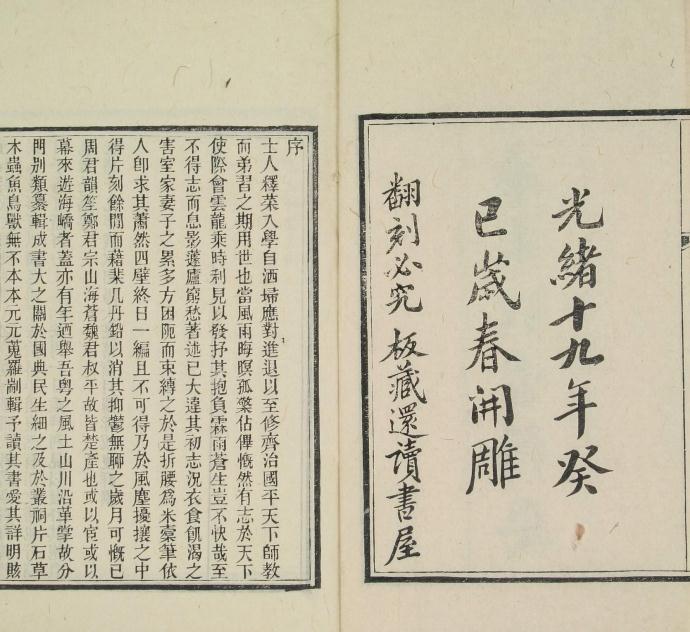 光緒十九年癸
巳歲春開雕
翻刻必究 板藏還讀書屋
序
士人釋菜入學自洒埽應對進退以至修齊治國平天下師教
而弟習之期用世也當風雨晦暝孤檠佔俾慨然有志於天下
使際會雲龍乘時利見以發抒其抱負霖雨蒼生豈不快哉至
不得志而息影蘧廬窮愁著述已大違其初志況衣食飢渴之
害室家妻子之累多方困阨而束縛之於是折腰爲米橐筆依
人卽求其蕭然四壁終日一編且不可得乃於風塵擾攘之中
得片刻餘閒而藉棐几丹鉛以消其抑鬱無聊之歲月可慨已
周君韻笙鄭君宗山海蒼魏君叔平故皆楚產也或以宦或以
幕來遊海嶠者蓋亦有年迺舉吾粵之風土山川沿革掌故分
門別類纂輯成書大之關於國典民生細之及於叢祠片石草
木蟲魚鳥獸無不本本元元蒐羅剬輯予讀其書愛其詳明賅